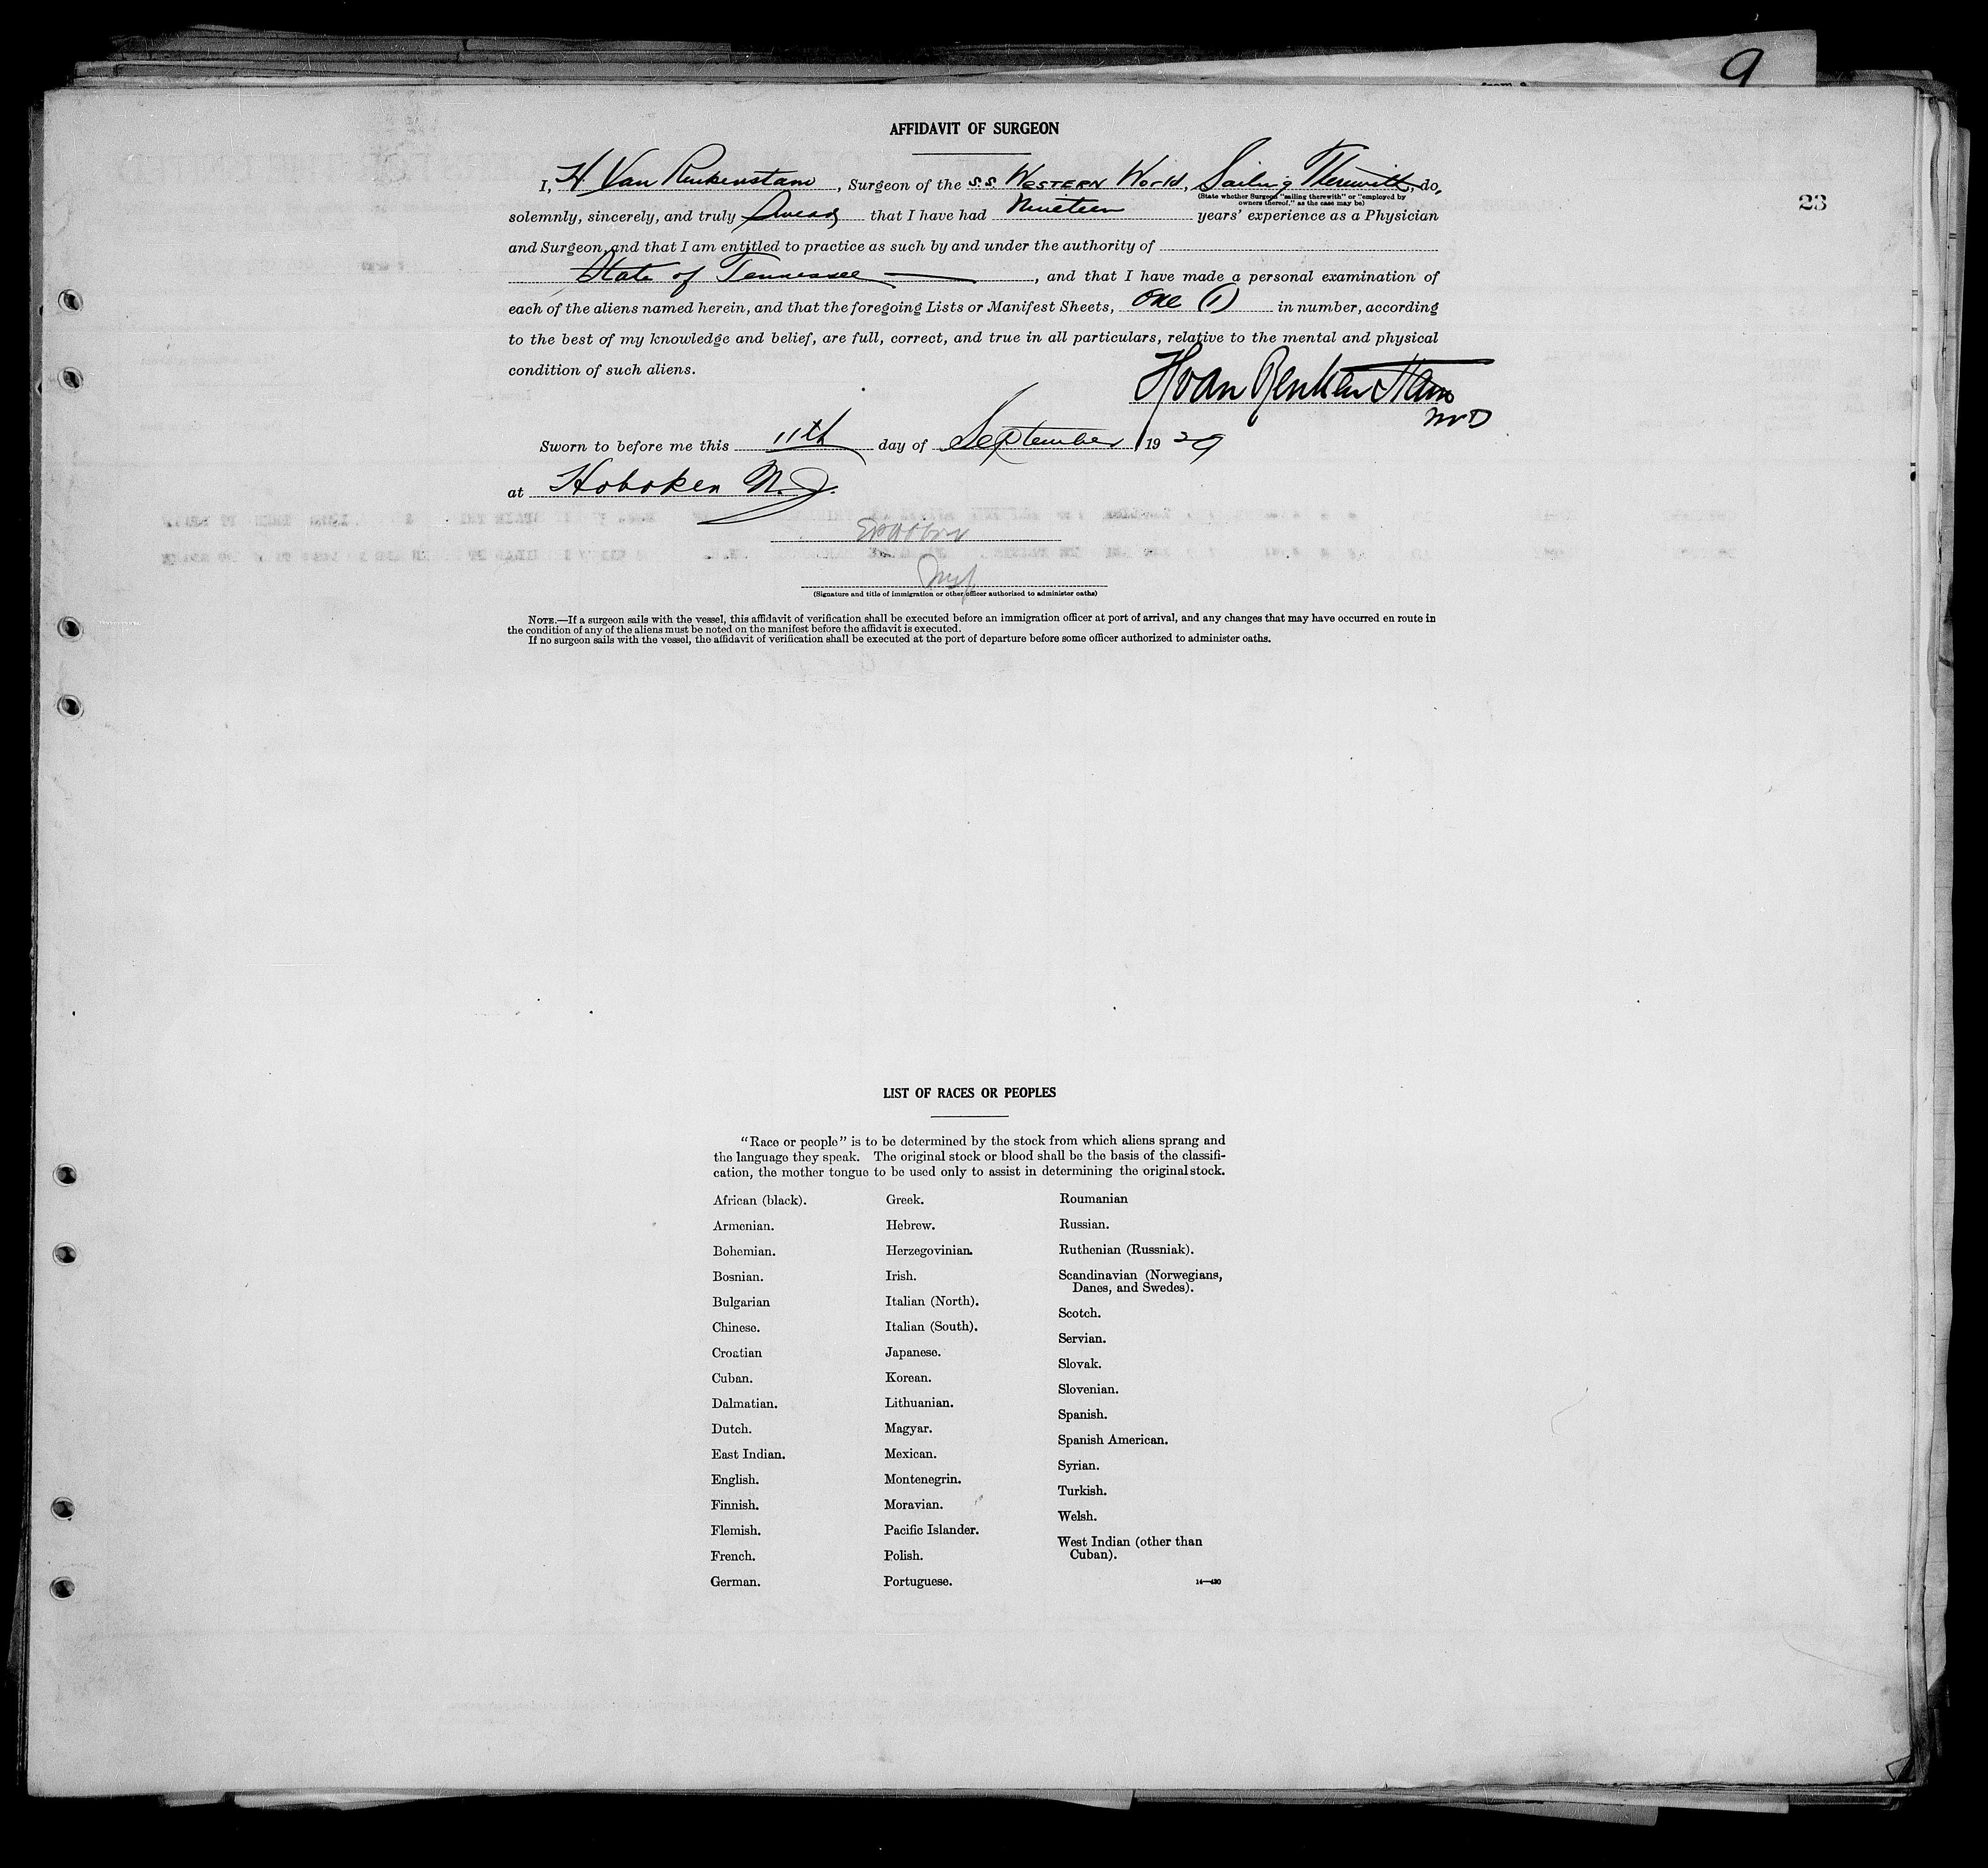 9
AFFIDAVIT OF SURGEON
23
I, H. Van Renkenstam, Surgeon of the S.S. WESTERN World, Sailing Therewith, do,
(State whether Surgeon "sailing therewith" or "employed by
owners thereof," as the case may be)
solemnly, sincerely, and truly Swear that I have had Nineteen years' experience as a Physician
and Surgeon, and that I am entitled to practice as such by and under the authority of
State of Tennessee, and that I have made a personal examination of
each of the aliens named herein, and that the foregoing Lists or Manifest Sheets, One (1) in number, according
to the best of my knowledge and belief, are full, correct, and true in all particulars, relative to the mental and physical
condition of such aliens.
H van Renkenstam
MD
Sworn to before me this 11th day of September, 1929
at Hoboken N.J.
(Signature and title of immigration or other officer authorized to administer oaths)
NOTE.—If a surgeon sails with the vessel, this affidavit of verification shall be executed before an immigration officer at port of arrival, and any changes that may have occurred en route in
the condition of any of the aliens must be noted on the manifest before the affidavit is executed.
If no surgeon sails with the vessel, the affidavit of verification shall be executed at the port of departure before some officer authorized to administer oaths.
LIST OF RACES OR PEOPLES
"Race or people" is to be determined by the stock from which aliens sprang and
the language they speak. The original stock or blood shall be the basis of the classifi-
cation, the mother tongue to be used only to assist in determining the original stock.
African (black).
Armenian.
Bohemian.
Bosnian.
Bulgarian
Chinese.
Croatian
Cuban.
Dalmatian.
Dutch.
East Indian.
English.
Finnish.
Flemish.
French.
German.
Greek.
Hebrew.
Herzegovinian.
Irish.
Italian (North).
Italian (South).
Japanese.
Korean.
Lithuanian.
Magyar.
Mexican.
Montenegrin.
Moravian.
Pacific Islander.
Polish.
Portuguese.
Roumanian
Russian.
Ruthenian (Russniak).
Scandinavian (Norwegians,
Danes, and Swedes).
Scotch.
Servian.
Slovak.
Slovenian.
Spanish.
Spanish American.
Syrian.
Turkish.
Welsh.
West Indian (other than
Cuban).
14—430